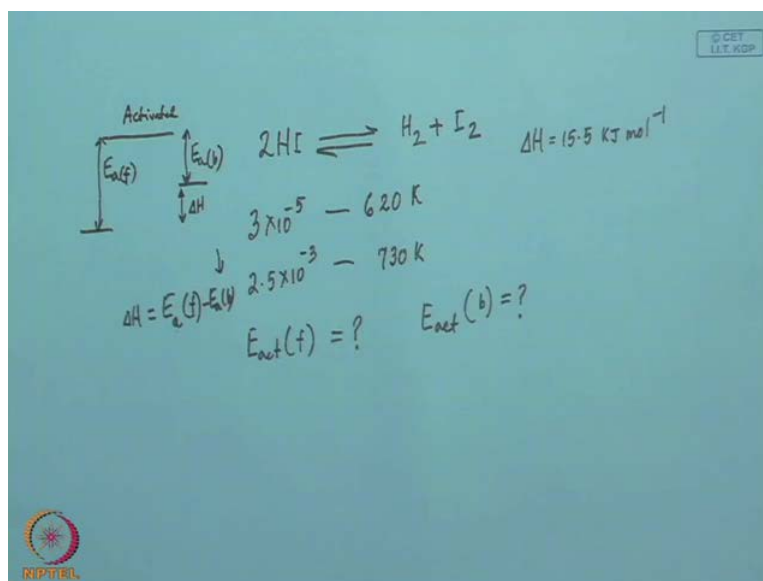 © CET
I.I.T. KGP
Activated
E_a(f)
E_a(b)
ΔH
2HI ⇌ H₂ + I₂ ΔH = 15.5 KJ mol⁻¹
3×10⁻⁵ — 620 K
2.5×10⁻³ — 730 K
↓
ΔH = E_a(f) - E_a(b)
E_act(f) = ? E_act(b) = ?
NPTEL